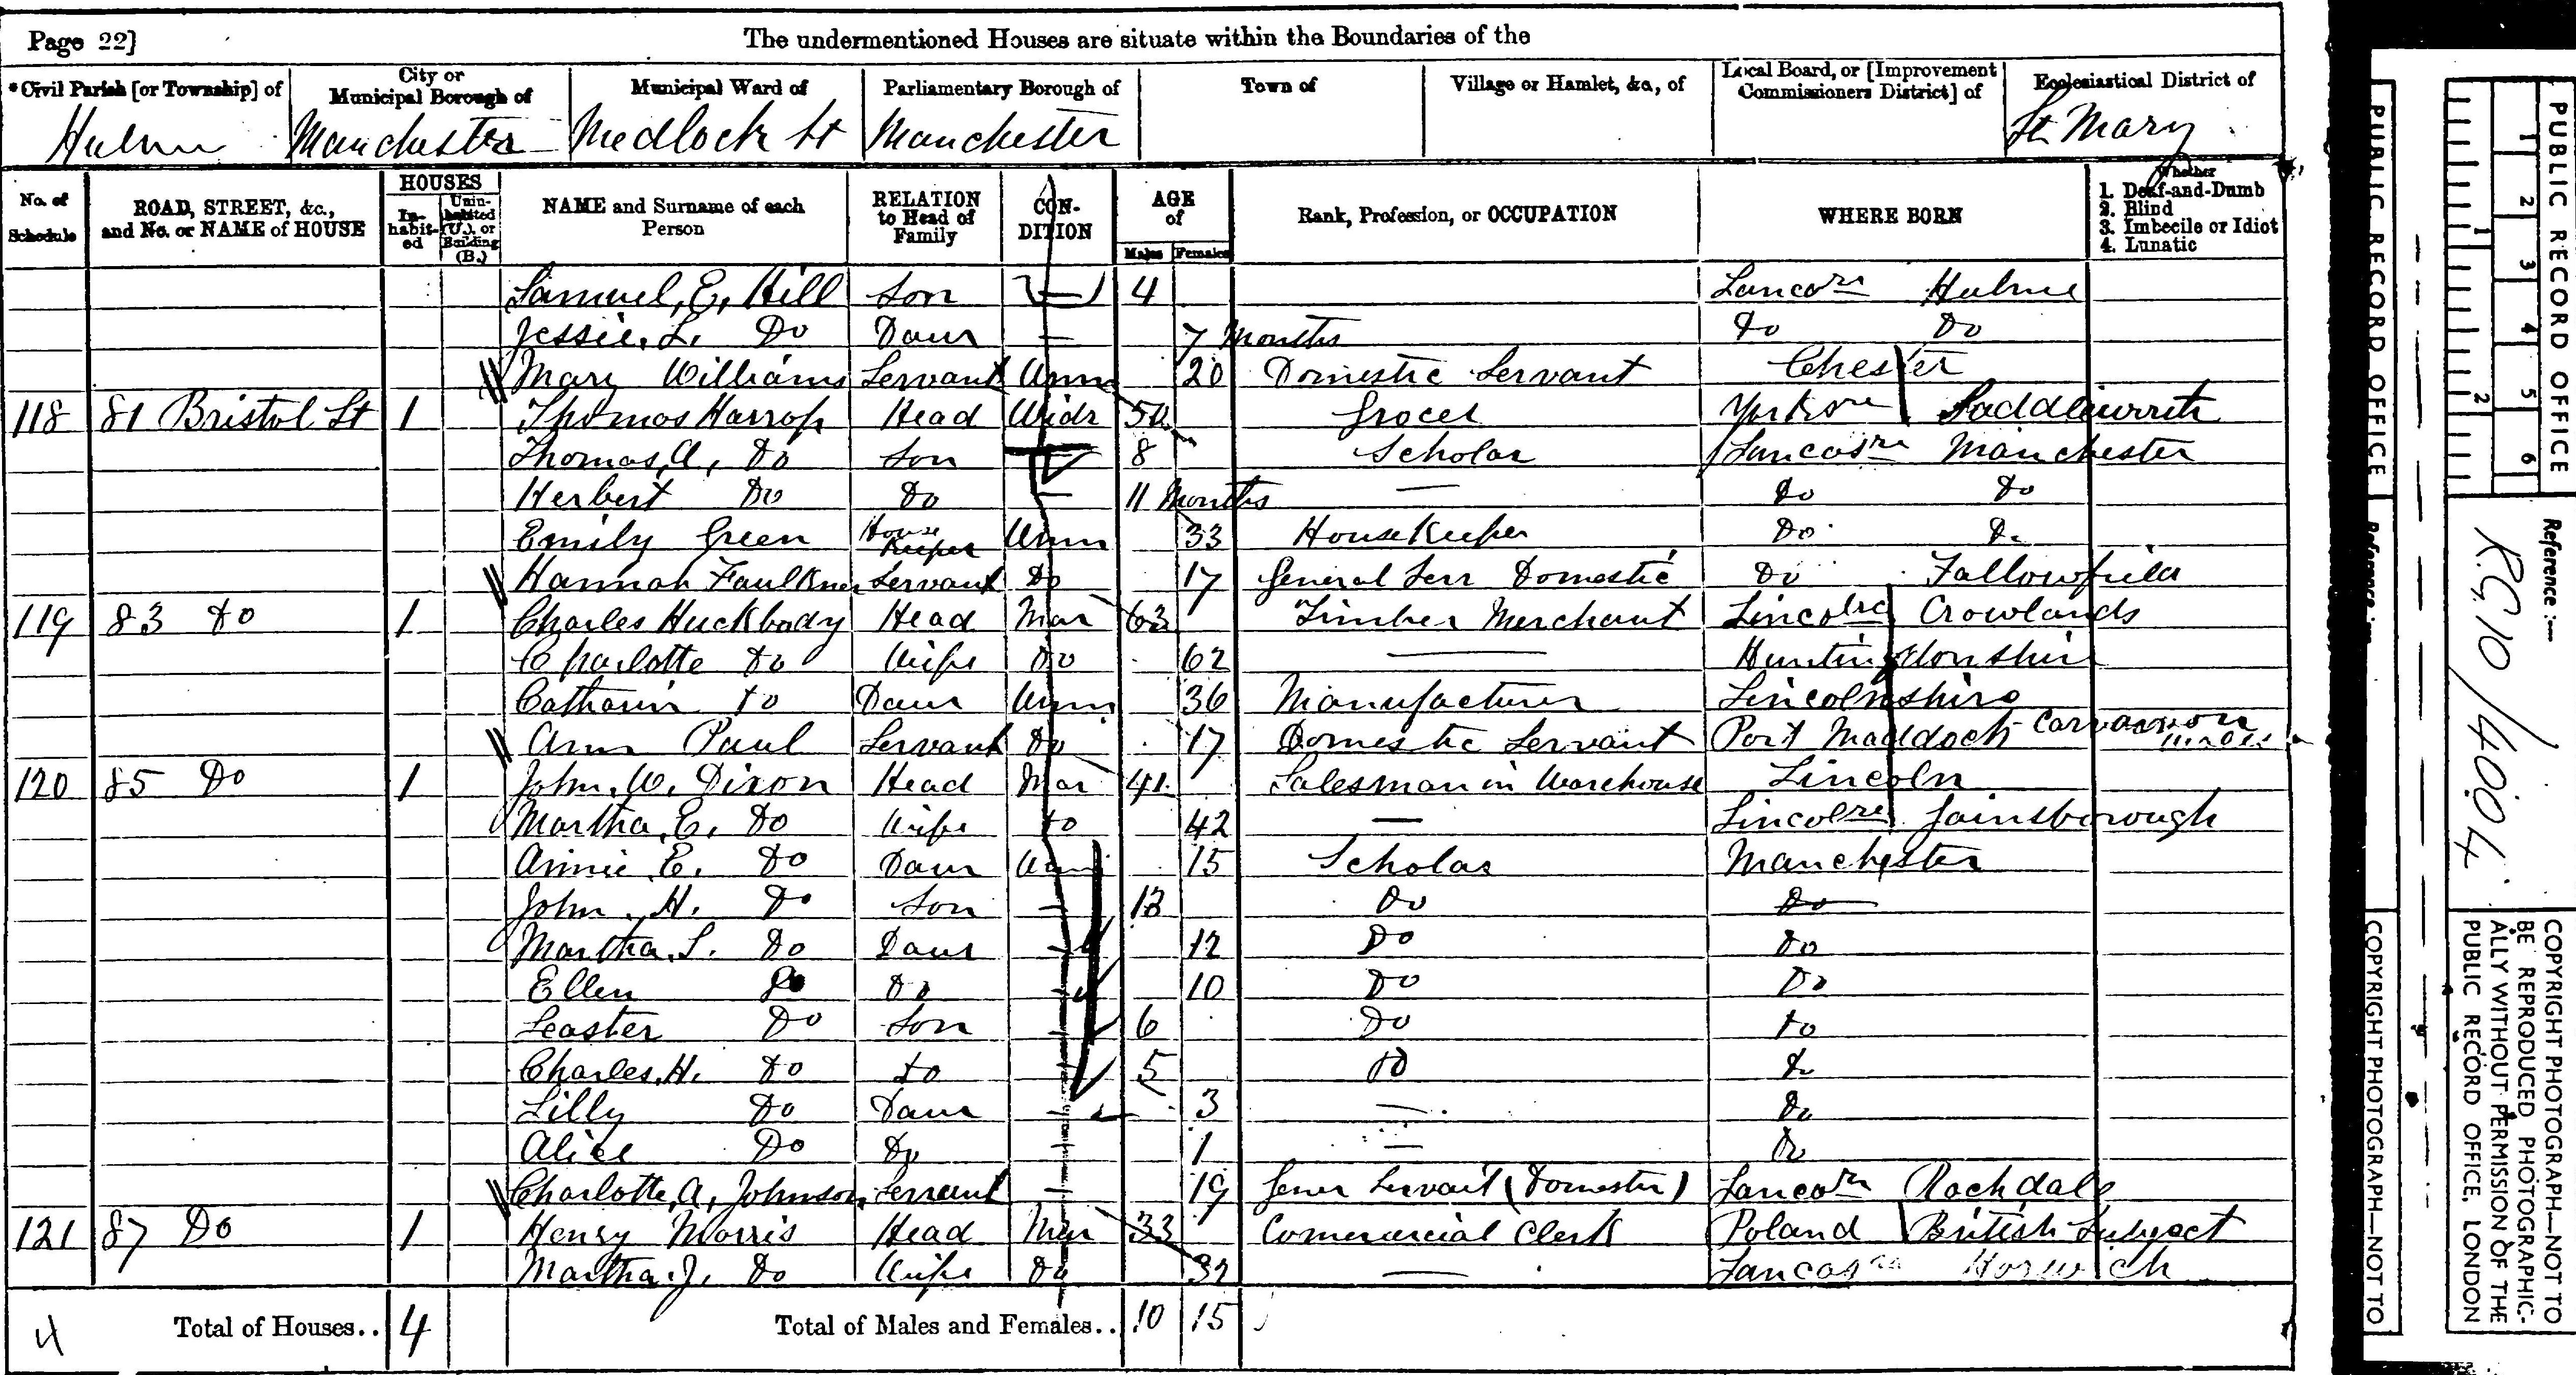 Page 22]
The undermentioned Houses are situate within the Boundaries of the
*Civil Parish [or Township] of City or Municipal Borough of Municipal Ward of Parliamentary Borough of Town of Village or Hamlet, &c., of Local Board, or [Improvement Commissioners District] of Ecclesiastical District of
Hulme Manchester Medlock St Manchester St. Mary
No. of Schedule ROAD, STREET, &c., and No. or NAME of HOUSE HOUSES Inhabited Uninhabited (U.), or Building (B.) NAME and Surname of each Person RELATION to Head of Family CONDITION AGE of Males Females Rank, Profession, or OCCUPATION WHERE BORN Whether 1. Deaf-and-Dumb 2. Blind 3. Imbecile or Idiot 4. Lunatic
Samuel, E, Hill Son — 4 Lancore Hulme
Jessie, L. Do Daur — 7 Months Do Do
Mary Williams Servant Unm 20 Domestic Servant Chester
118 81 Bristol St 1 Thomas Harrop Head Widr 50 Grocer Yorksre Saddleworth
Thomas, A, Do Son 8 Scholar Lancasre Manchester
Herbert Do Do — 11 Months — Do Do
Emily Green House Keeper Unm 33 HouseKeeper Do Do
Hannah Faulkner Servant Do 17 General Serv Domestic Do Fallowfield
119 83 Do 1 Charles Huckbody Head Mar 63 Timber Merchant Lincolre Crowlands
Charlotte Do Wife Do 62 — Huntingdonshire
Catharin Do Daur Unm 36 Manufacturer Lincolnshire
Ann Paul Servant Do 17 Domestic Servant Port Maddock Carvarvon
120 85 Do 1 John. W. Dixon Head Mar 41 Salesman in Warehouse Lincoln
Martha, E, Do Wife Do 42 — Lincolre Gainsborough
Annie E. Do Daur Unm 15 Scholar Manchester
John. H. Do Son — 13 Do Do
Martha. S. Do Daur — 12 Do Do
Ellen Do Do — 10 Do Do
Leaster Do Son — 6 Do Do
Charles, H. Do Do — 5 Do Do
Lilly Do Daur — 3 — Do
Alice Do Do — 1 — Do
Charlotte, A, Johnson Servant — 19 Gener Servant (Domestic) Lancore Rochdale
121 87 Do 1 Henry Morris Head Mar 33 Commercial Clerk Poland British Subject
Martha. J. Do Wife Do 32 — Lancasre Horwich
4 Total of Houses.. 4 Total of Males and Females.. 10 15
PUBLIC RECORD OFFICE
Reference :—
COPYRIGHT PHOTOGRAPH—NOT TO
1 2 3 4 5 6
1 2
PUBLIC RECORD OFFICE
Reference :—
R.G. 10/4004
COPYRIGHT PHOTOGRAPH—NOT TO
BE REPRODUCED PHOTOGRAPHIC-
ALLY WITHOUT PERMISSION OF THE
PUBLIC RECORD OFFICE, LONDON